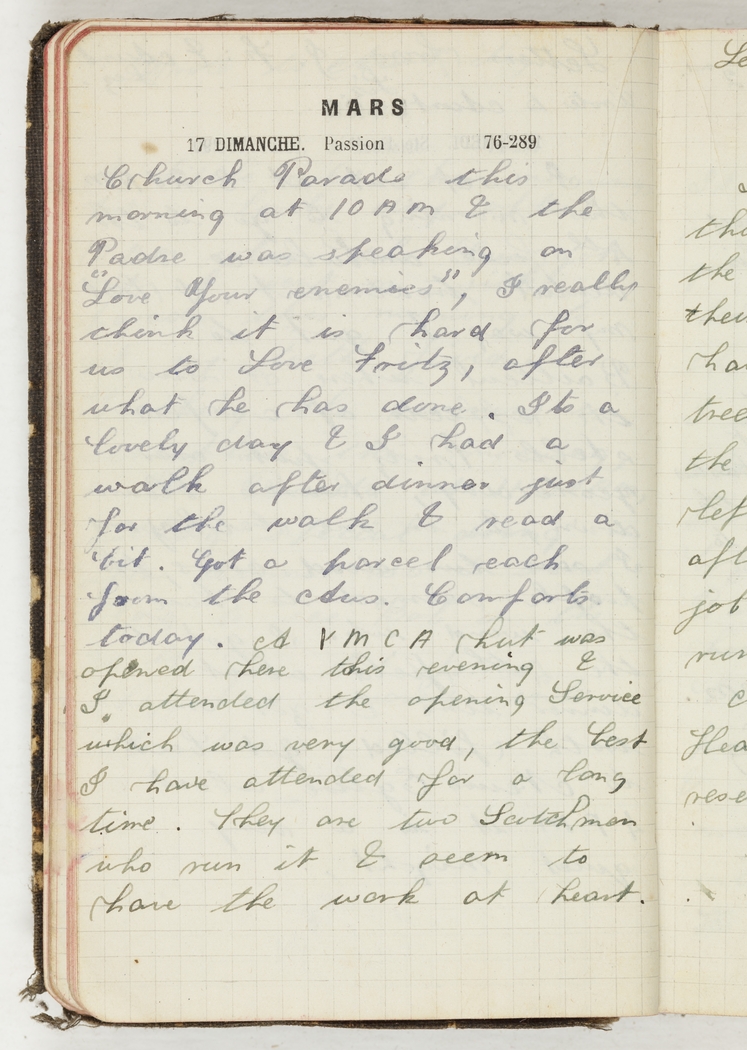 MARS
17 DIMANCHE. Passion 76-289
Church Parade this
morning at 10 AM & the
Padre was speaking on
"Love Your enemies", I really
think it is hard for
us to Love Fritz, after
what he has done. Its a
lovely day & I had a
walk after dinner just
for the walk & read a
bit. Got a parcel each
from the Aus. Comforts
today. A YMCA hut was
opened here this evening &
I attended the opening Service
which was very good, the best
I have attended for a long
time. They are two Scotchmen
who run it & seem to
have the work at heart.
Le
the
the
their
ha
tree
the
lef
aft
job
run
c
Hea
rese